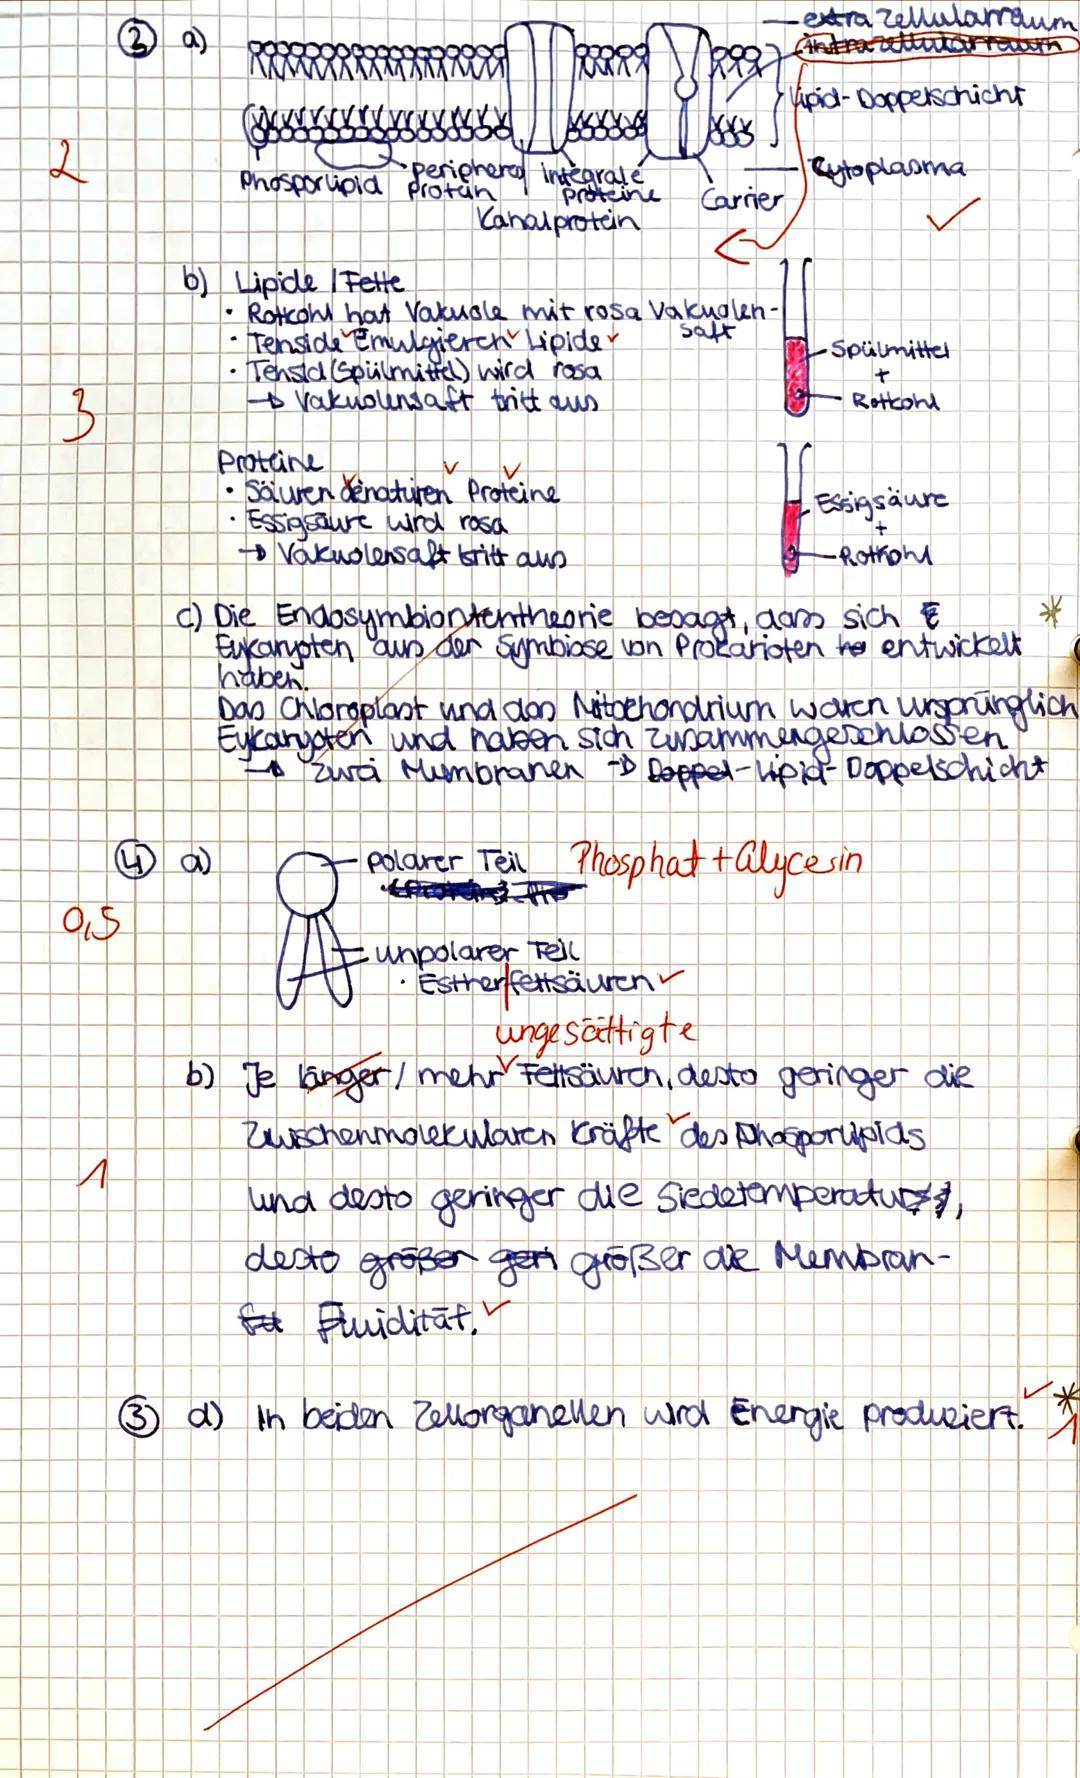 ③ a)
extrazellularraum
intrazellularraum
Lipid-Doppelschicht
Cytoplasma
2
Phosporlipid
peripheres
Protein
integrale
Proteine
Kanalprotein
Carrier
b) Lipide / Fette
• Rotkohl hat Vakuole mit rosa Vakuolen-
saft
• Tenside Emulgieren Lipide
• Tensid (Spülmittel) wird rosa
→ Vakuolensaft tritt aus
Spülmittel
+
Rotkohl
3
Proteine
• Säuren denaturien Proteine
• Essigsäure wird rosa
→ Vakuolensaft tritt aus
Essigsäure
+
Rotkohl
c) Die Endosymbiontentheorie besagt, dass sich E *
Eukaryoten aus der Symbiose von Prokarioten he entwickelt
haben.
Das Chloroplast und das Mitochondrium waren ursprünglich
Eukaryoten und haben sich zusammengeschlossen
→ zwei Mumbranen → Doppel-Lipid-Doppelschicht
④ a)
polarer Teil Phosphat + Glycerin
0,5
unpolarer Teil
• Estherfettsäuren
ungesättigte
b) Je länger / mehr Fettsäuren, desto geringer die
Zwischenmolekularen Kräfte des Phosporlipids
1
und desto geringer die Siedetemperatur,
desto größer geri größer die Membran-
Fluidität.
③ d) In beiden Zellorganellen wird Energie produziert. *
1